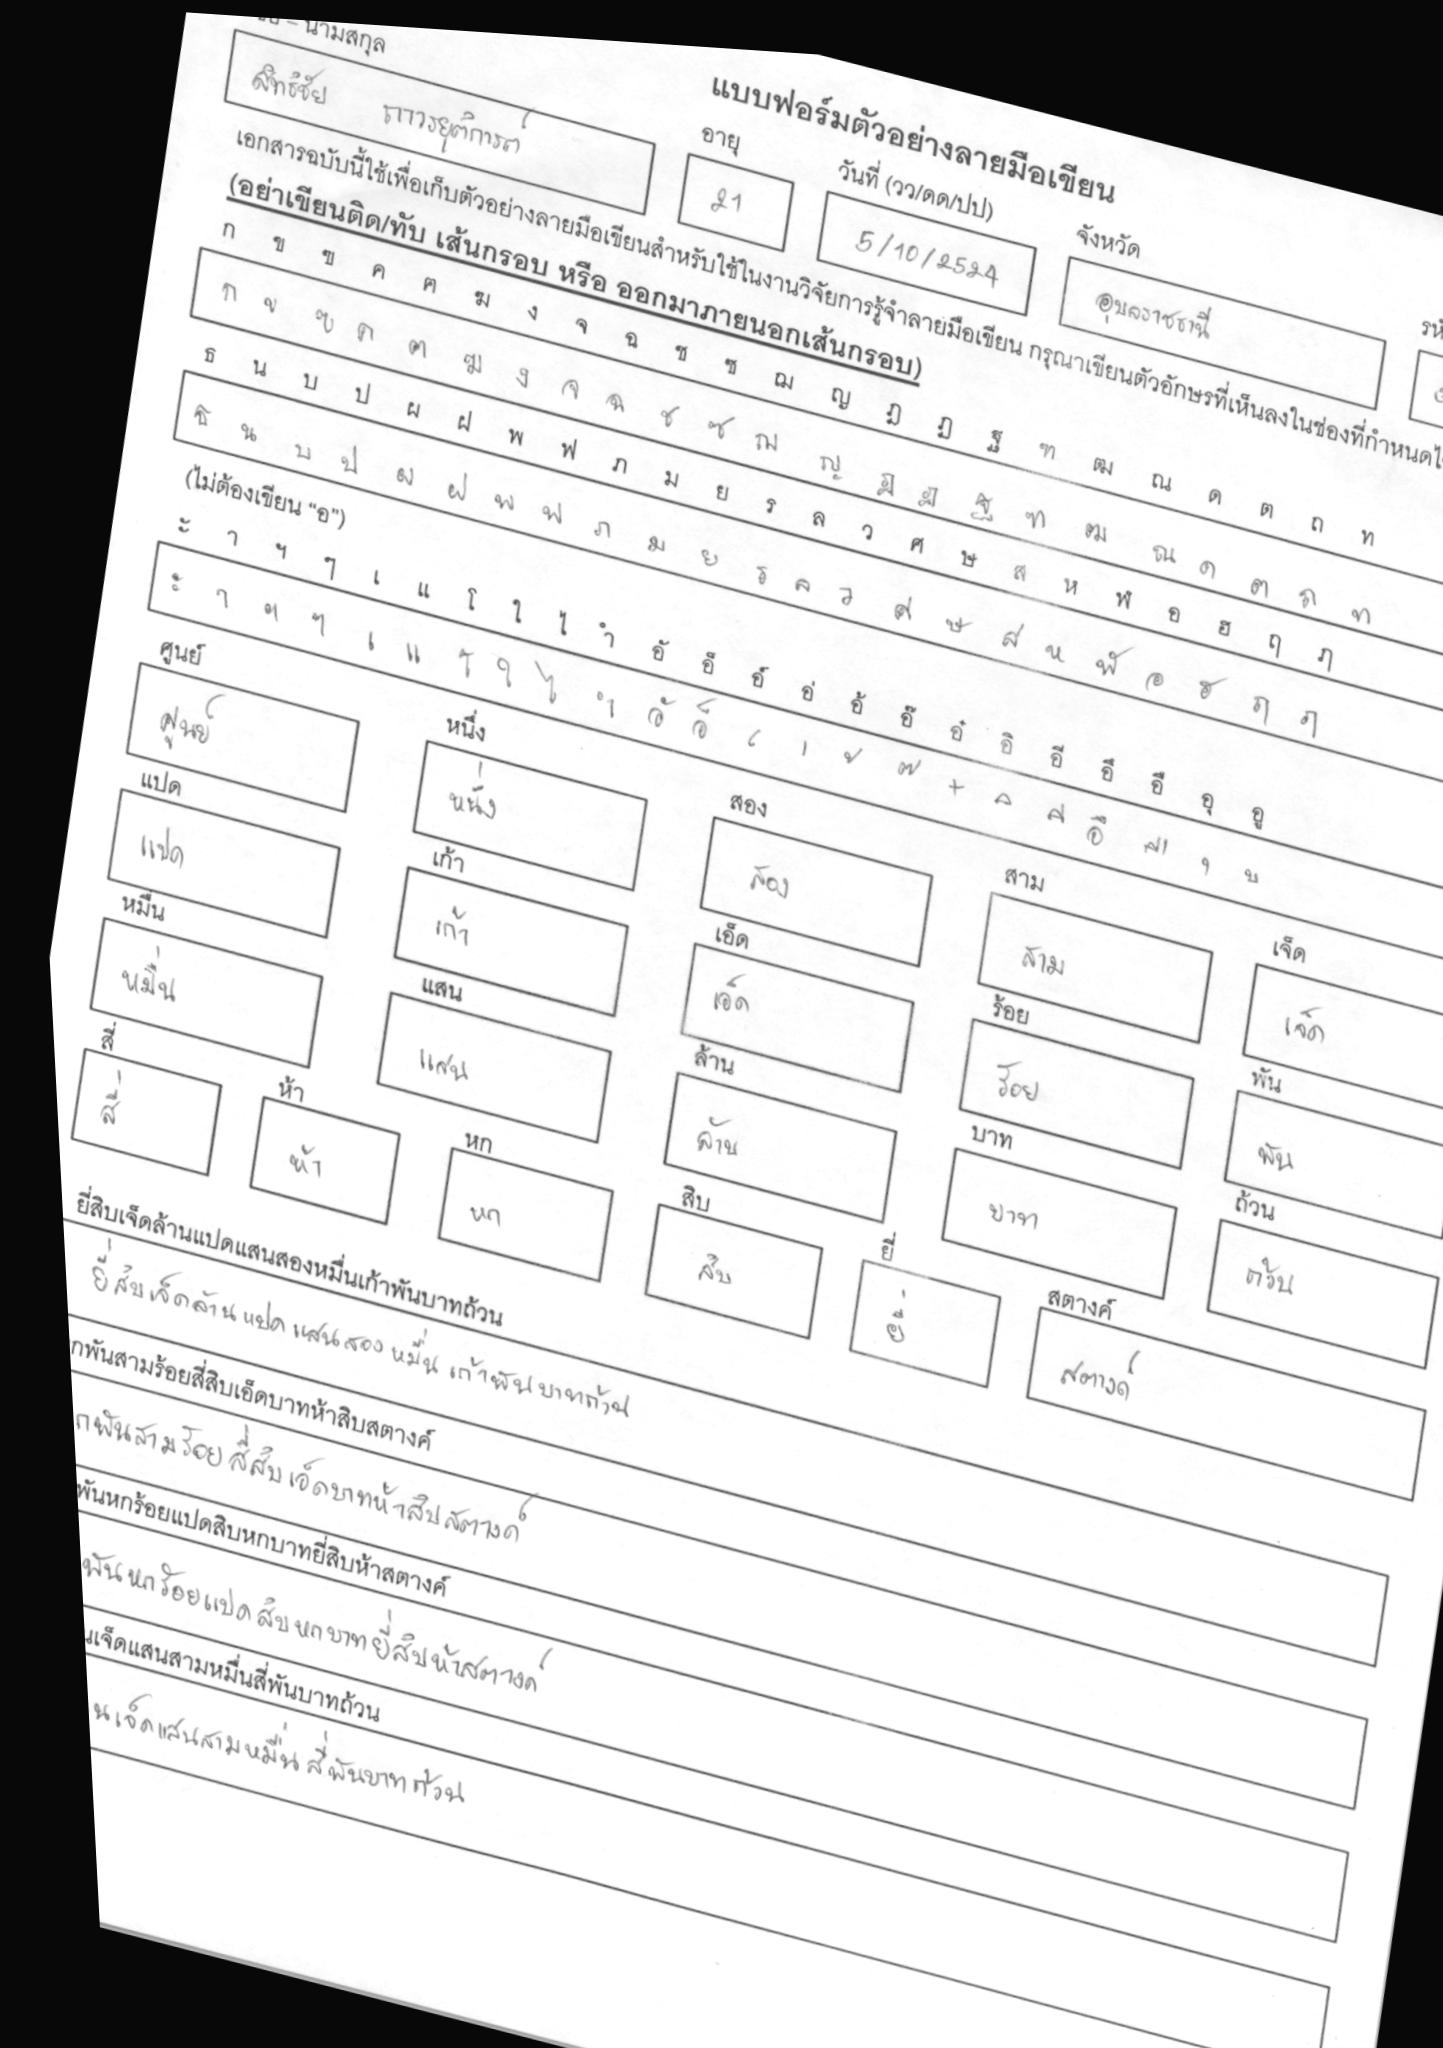 แบบฟอร์มตัวอย่างลายมือเขียน
นามสกุล
สิทธิชัย ถาวรยุติการต์
อายุ
21
วันที่ (วว/ดด/ปป)
5/10/2524
จังหวัด
อุบลราชธานี
เอกสารฉบับนี้ใช้เพื่อเก็บตัวอย่างลายมือเขียนสำหรับใช้ในงานวิจัยการรู้จำลายมือเขียน กรุณาเขียนตัวอักษรที่เห็นลงในช่องที่กำหนด
(อย่าเขียนติด/ทับ เส้นกรอบ หรือ ออกมาภายนอกเส้นกรอบ)
ก ข ฃ ค ฅ ฆ ง จ ฉ ช ซ ฌ ญ ฎ ฏ ฐ ฑ ฒ ณ ด ต ถ ท
ก ข ฃ ค ฅ ฆ ง จ ฉ ช ซ ฌ ญ ฎ ฏ ฐ ฑ ฒ ณ ด ต ถ ท
ธ น บ ป ผ ฝ พ ฟ ภ ม ย ร ล ว ศ ษ ส ห ฬ อ ฮ ฤ ฦ
ธ น บ ป ผ ฝ พ ฟ ภ ม ย ร ล ว ศ ษ ส ห ฬ อ ฮ ฤ ฦ
(ไม่ต้องเขียน "อ")
ะ า ฯ ๆ เ แ โ ใ ไ ำ อั อ็ อ์ อ่ อ้ อ๊ อ๋ อิ อี อึ อื อุ อู
ะ า ฯ ๆ เ แ โ ใ ไ ำ อั อ็ ์ ่ ้ ๊ ๋ ิ ี อึ ื ุ ู
ศูนย์ หนึ่ง สอง สาม เจ็ด
ศูนย์ หนึ่ง สอง สาม เจ็ด
แปด เก้า เอ็ด ร้อย พัน
แปด เก้า เอ็ด ร้อย พัน
หมื่น แสน ล้าน บาท ถ้วน
หมื่น แสน ล้าน บาท ถ้วน
สี่ ห้า หก สิบ ยี่ สตางค์
สี่ ห้า หก สิบ ยี่ สตางค์
ยี่สิบเจ็ดล้านแปดแสนสองหมื่นเก้าพันบาทถ้วน
ยี่สิบเจ็ดล้านแปดแสนสองหมื่นเก้าพันบาทถ้วน
กพันสามร้อยสี่สิบเอ็ดบาทห้าสิบสตางค์
กพันสามร้อยสี่สิบเอ็ดบาทห้าสิบสตางค์
พันหกร้อยแปดสิบหกบาทยี่สิบห้าสตางค์
พันหกร้อยแปดสิบหกบาทยี่สิบห้าสตางค์
นเจ็ดแสนสามหมื่นสี่พันบาทถ้วน
นเจ็ดแสนสามหมื่นสี่พันบาทถ้วน